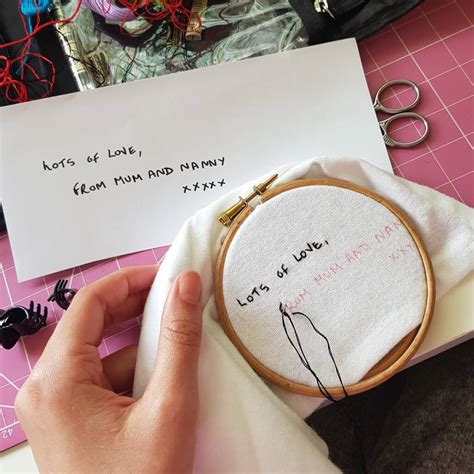 LOTS OF LOVE,
FROM MUM AND NANNY
XXXXX
LOTS OF LOVE,
FROM MUM AND NAN
XX
42